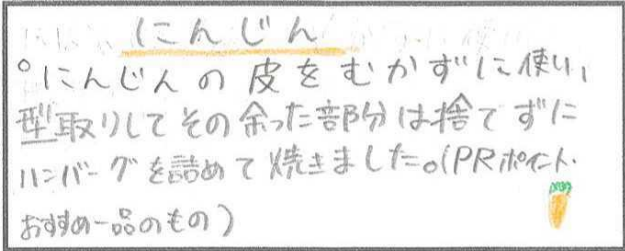 にんじん
○にんじんの皮をむかずに使い、
型取りしてその余った部分は捨てずに
ハンバーグを詰めて焼きました。(PRポイント・
おすすめ一品のもの)